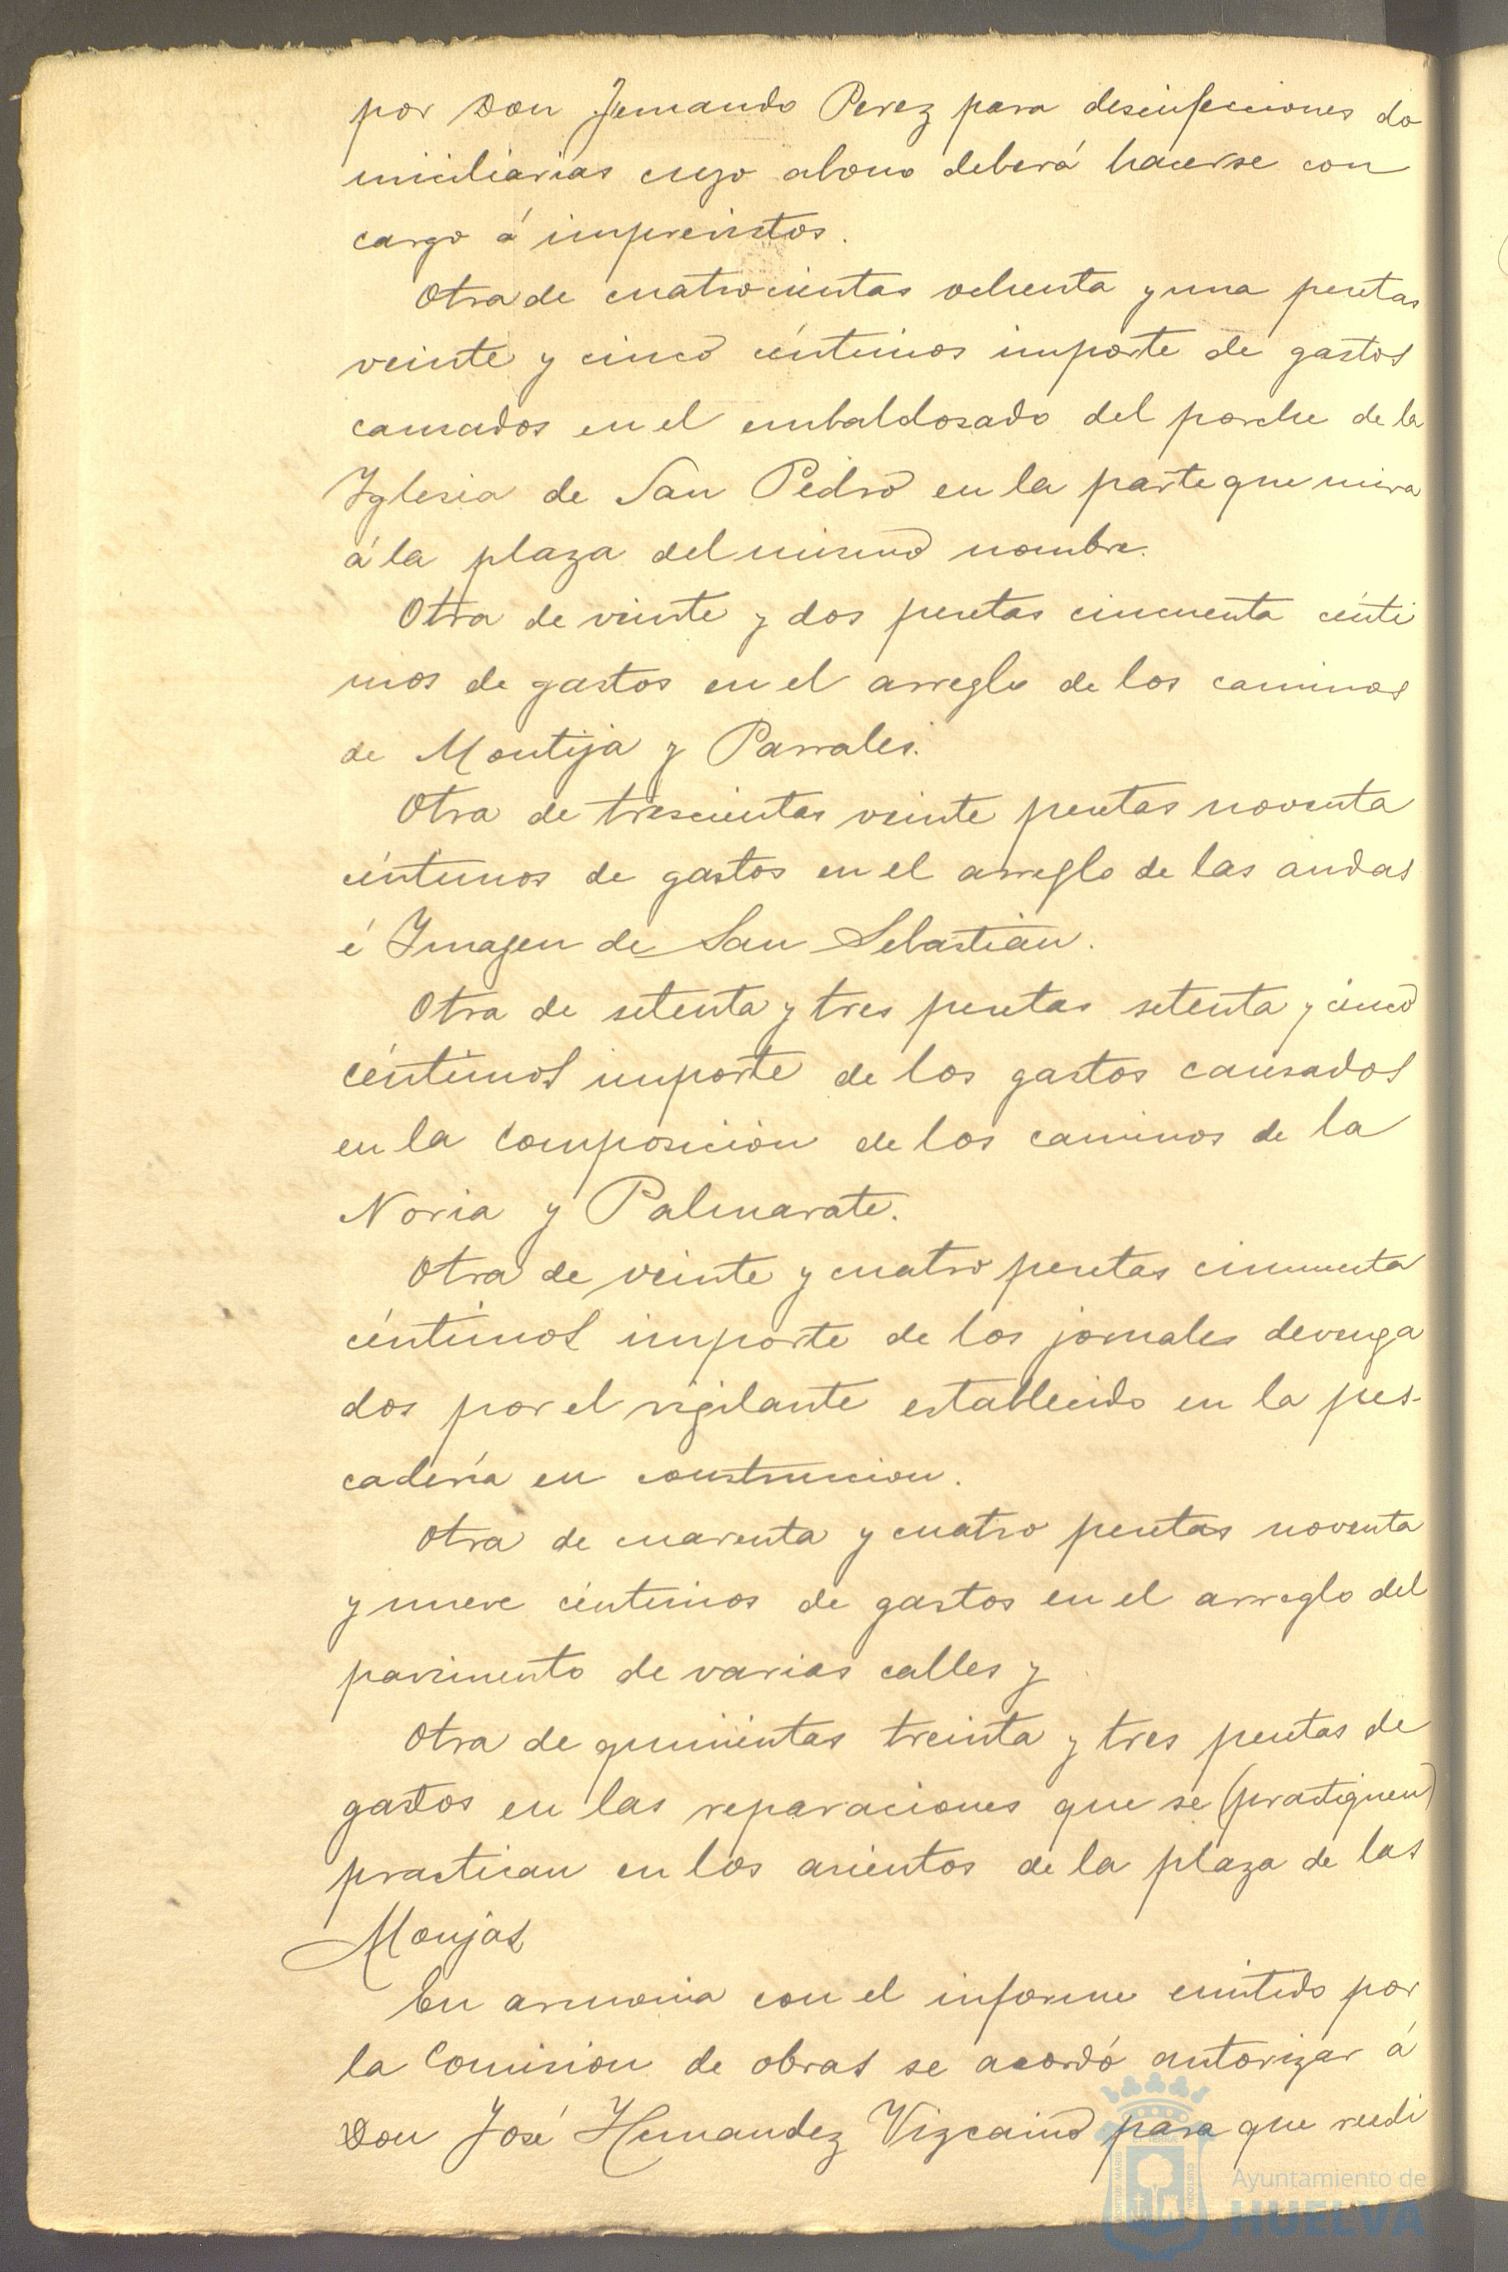 por Don Fernando Perez para desinfecciones do
miciliarias cuyo abono deberá hacerse con
cargo á imprevistos.
Otra de cuatrocientas ochenta y una pesetas
veinte y cinco céntimos importe de gastos
causados en el embaldosado del porche de la
Yglesia de San Pedro en la parte que mira
á la plaza del mismo nombre.
Otra de veinte y dos pesetas cincuenta cénti
mos de gastos en el arreglo de los caminos
de Montija y Parrales.
Otra de trescientas veinte pesetas noventa
céntimos de gastos en el arreglo de las andas
é Ymagen de San Sebastián.
Otra de setenta y tres pesetas setenta y cinco
céntimos importe de los gastos causados
en la composición de los caminos de la
Noria y Palmarate.
Otra de veinte y cuatro pesetas cincuenta
céntimos importe de los jornales devenga
dos por el vigilante establecido en la pes-
cadería en construccion.
Otra de cuarenta y cuatro pesetas noventa
y nueve céntimos de gastos en el arreglo del
pavimento de varias calles y
Otra de quinientas treinta y tres pesetas de
gastos en las reparaciones que se (practiquen)
practican en los asientos de la plaza de las
Monjas
En armonia con el informe emitido por
la Comision de obras se acordó autorizar á
Don José Hernandez Vizcaino para que reedi
Ayuntamiento de
HUELVA